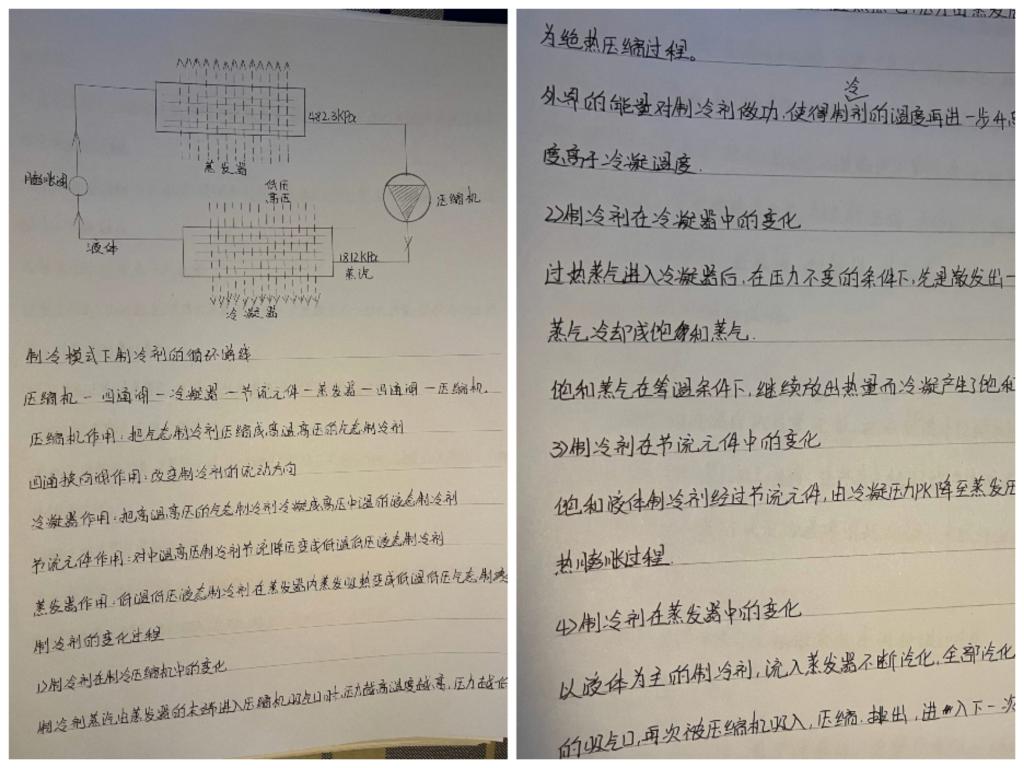 482.3kPa
蒸发器
膨胀阀
低压
高压
压缩机
液体
1812kPa
蒸汽
冷凝器
制冷模式下制冷剂的循环路线
压缩机-四通阀-冷凝器-节流元件-蒸发器-四通阀-压缩机.
压缩机作用:把气态制冷剂压缩成高温高压的气态制冷剂
四通换向阀作用:改变制冷剂的流动方向
冷凝器作用:把高温高压的气态制冷剂冷凝成高压中温的液态制冷剂
节流元件作用:对中温高压制冷剂节流降压变成低温低压液态制冷剂
蒸发器作用:低温低压液态制冷剂在蒸发器内蒸发吸热变成低温低压气态制冷
制冷剂的变化过程
1>制冷剂在制冷压缩机中的变化
制冷剂蒸汽由蒸发器的末端进入压缩机吸气口时,压力越高温度越高,压力越低
为绝热压缩过程。
冷
外界的能量对制冷剂做功,使得制剂的温度再进一步升高
度高于冷凝温度.
2>制冷剂在冷凝器中的变化
过热蒸气进入冷凝器后,在压力不变的条件下,先是散发出一
蒸气冷却成饱和蒸气.
饱和蒸气在等温条件下,继续放出热量而冷凝产生了饱和
3>制冷剂在节流元件中的变化
饱和液体制冷剂经过节流元件,由冷凝压力PK降至蒸发压
热膨胀过程.
4>制冷剂在蒸发器中的变化
以液体为主的制冷剂,流入蒸发器不断汽化,全部汽化
的吸气口,再次被压缩机吸入,压缩.排出,进入下一次